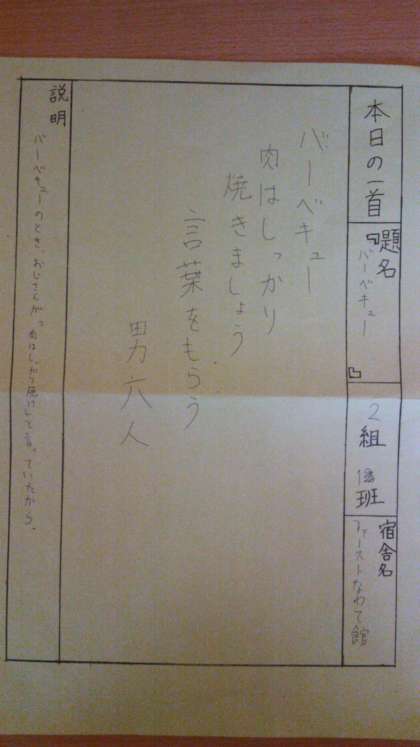 本日の一首
題名
『バーベキュー』
2組
班
宿舎名
ファーストなわて館
バーベキュー
肉はしっかり
焼きましょう
言葉をもらう
男六人
説明
バーベキューのとき、おじさんが、肉はしっかり焼けと言っていたから。